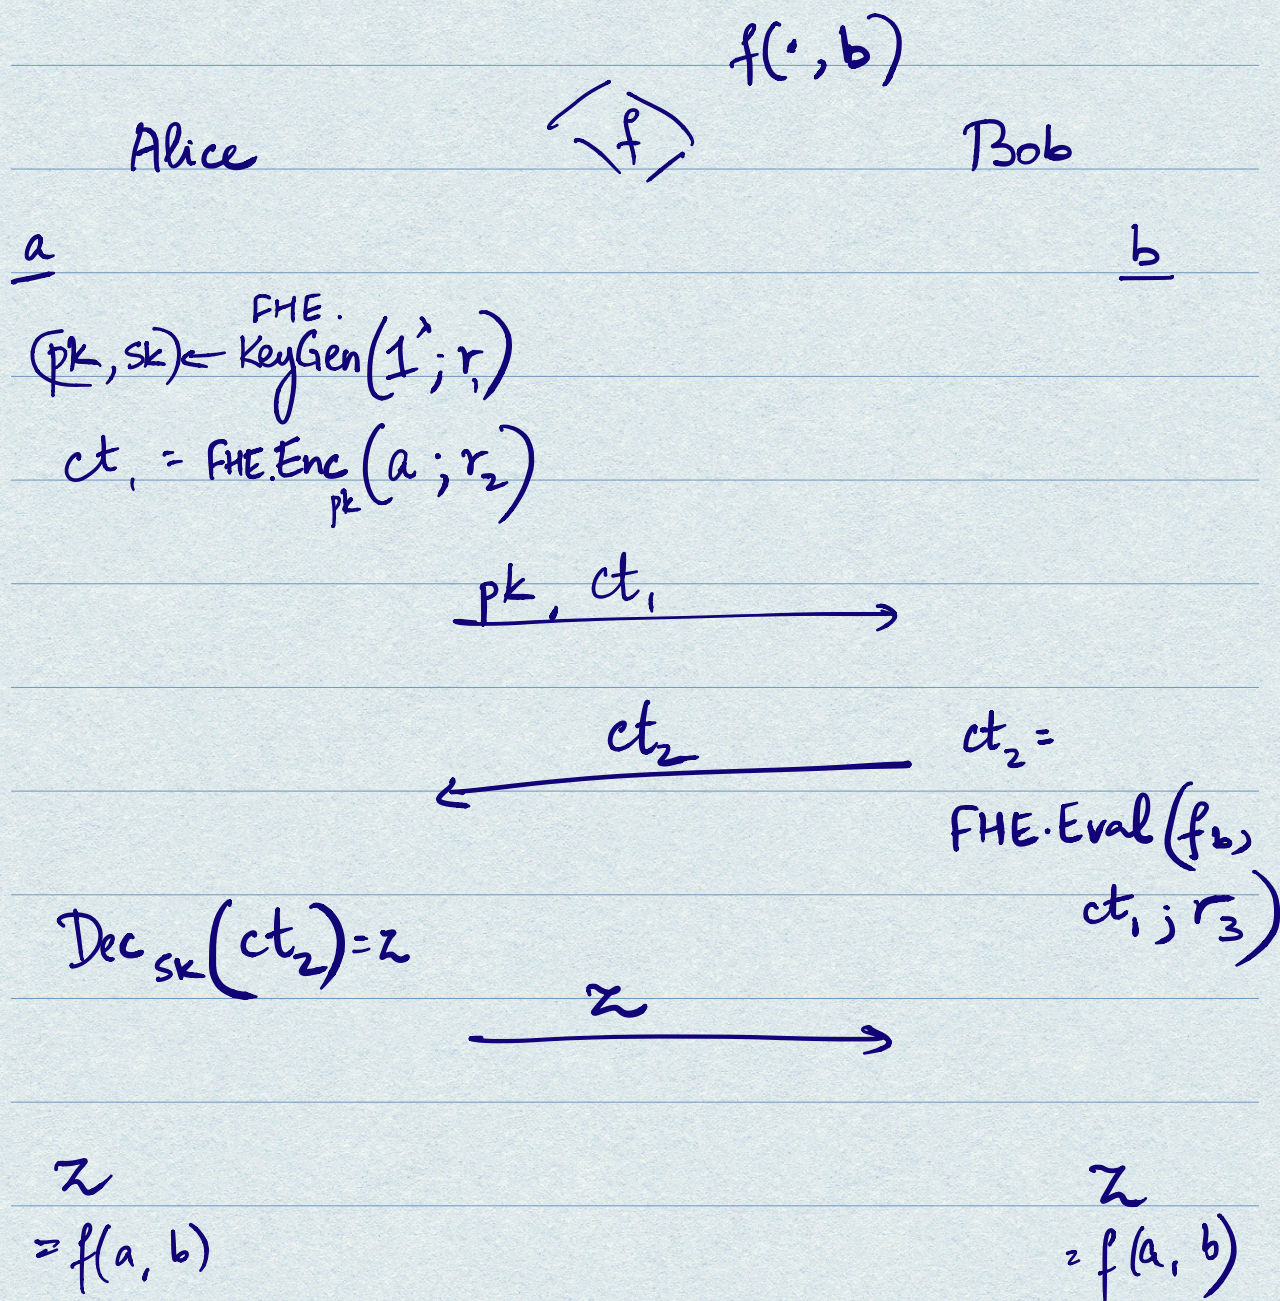 f(·, b)
Alice <f> Bob
a b
(pk, sk) ← FHE.KeyGen(1^λ; r₁)
ct₁ = FHE.Enc_pk(a; r₂)
pk, ct₁
ct₂ ct₂ =
FHE.Eval(f_b,
ct₁; r₃)
Dec_sk(ct₂) = z
z
z z
= f(a, b) = f(a, b)